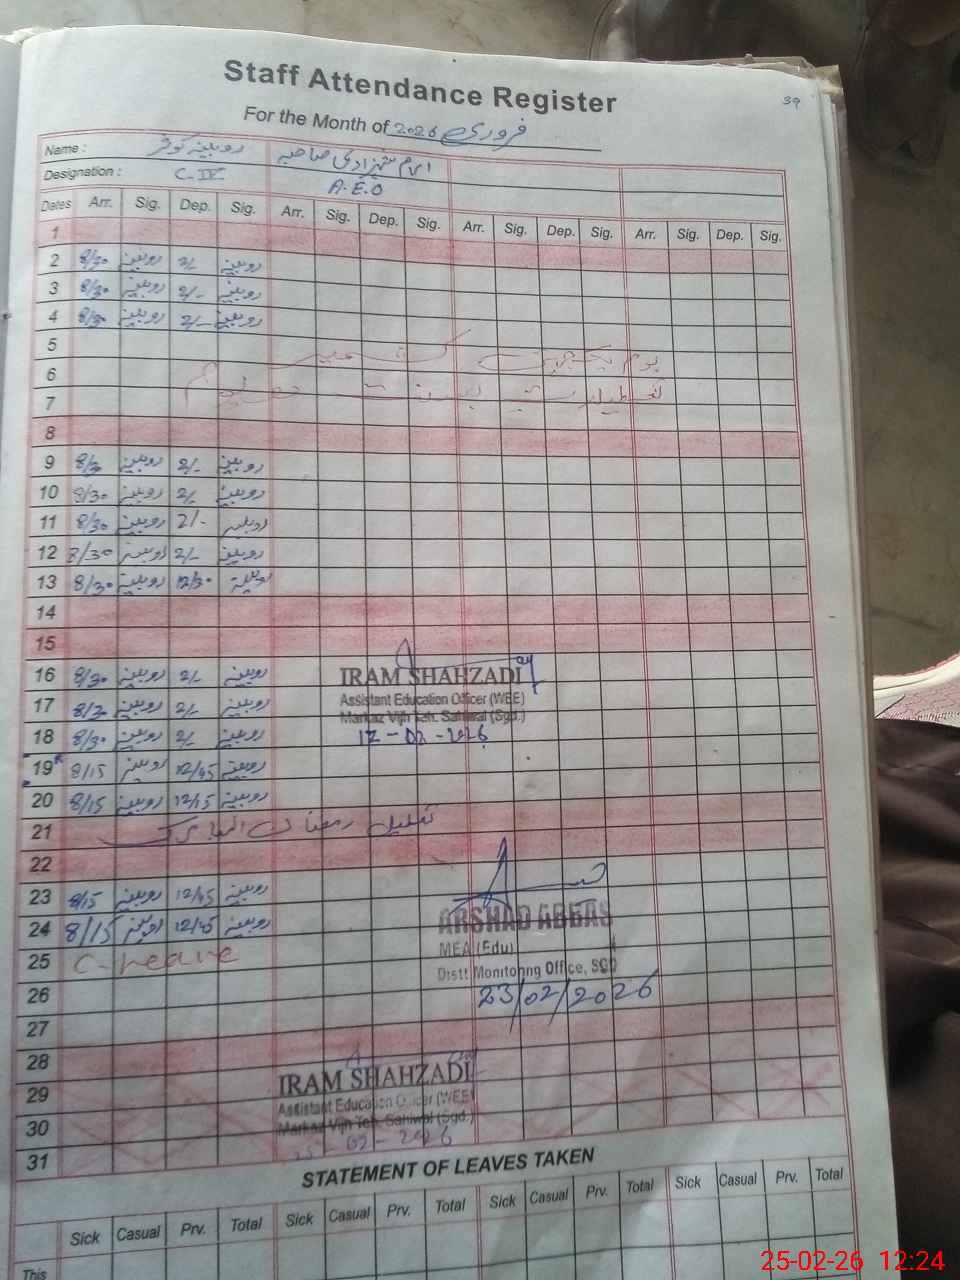 Staff Attendance Register
39
For the Month of 2026 فروری
Name : روبینہ کوثر ارم شہزادی صاحبہ
Designation : C-IV A.E.O
Dates Arr. Sig. Dep. Sig. Arr. Sig. Dep. Sig. Arr. Sig. Dep. Sig. Arr. Sig. Dep. Sig.
1
2 8/30 روبینہ 2/- روبینہ
3 8/30 روبینہ 2/- روبینہ
4 8/30 روبینہ 2/- روبینہ
5 یوم یکجہتی کشمیر
6
7 تعطیلات بسنت
8
9 8/30 روبینہ 2/- روبینہ
10 8/30 روبینہ 2/- روبینہ
11 8/30 روبینہ 2/- روبینہ
12 8/30 روبینہ 2/- روبینہ
13 8/30 روبینہ 12/30 روبینہ
14
15
16 8/30 روبینہ 2/- روبینہ
IRAM SHAHZADI
17 8/30 روبینہ 2/- روبینہ
Assistant Education Officer (WEE)
Markaz Vijh Teh. Sahiwal (Sgd.)
18 8/30 روبینہ 2/- روبینہ
12-02-2026
19 8/15 روبینہ 12/45 روبینہ
20 8/15 روبینہ 12/15 روبینہ
21 تعطیل رمضان المبارک
22
23 8/15 روبینہ 12/45 روبینہ
24 8/15 روبینہ 12/45 روبینہ
ARSHAD ABBAS
MEA (Edu)
25 C-leave
Distt Monitoring Office, SGD
26
23/02/2026
27
28
IRAM SHAHZADI
29
Assistant Education Officer (WEE)
30
Markaz Vijh Teh. Sahiwal (Sgd.)
31
25-02-2026
STATEMENT OF LEAVES TAKEN
Sick Casual Prv. Total Sick Casual Prv. Total Sick Casual Prv. Total Sick Casual Prv. Total
This
25-02-26 12:24